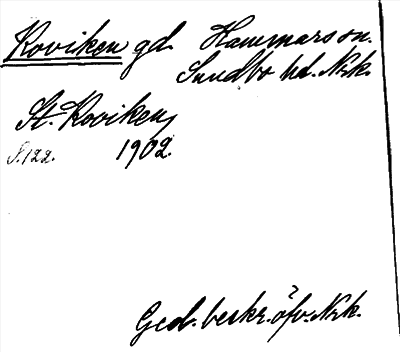 Roviken gd. Hammars sn.
Sundbo hd. Nrk.
St. Roviken,
S. 122. 1902.
Ged. beskr. öfv. Nrk.